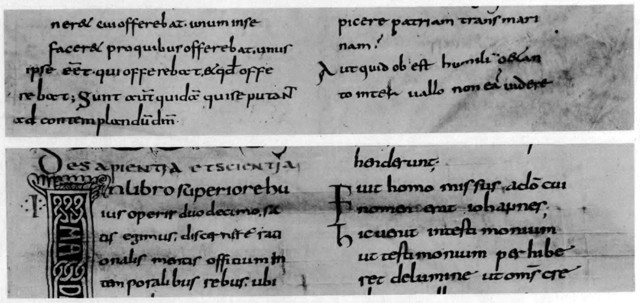 ner& cui offerebat. unum inse
facer& pro quibus offerebat. unus
ipse eēt. qui offerebat, & qđ offe
rebat; Sunt aūt quidā qui se putant
ad contemplandū dm̄.
picere patriam trans mari
nam.
Aut quid obest humili oblan
to inter uallo non eā uidere
DE SAPIENTIA ET SCIENTIA
I
MA
D
In libro superiore hu
ius operis duodecimo, sa
tis egimus, discernere raci
onalis mentis officium in
temporalibus rebus, ubi
henderunt;
Fuit homo missus a dō cui
nomen erat iohannes;
hic uenit in testimonium
ut testimonium perhibe
ret de lumine ut omīs cre